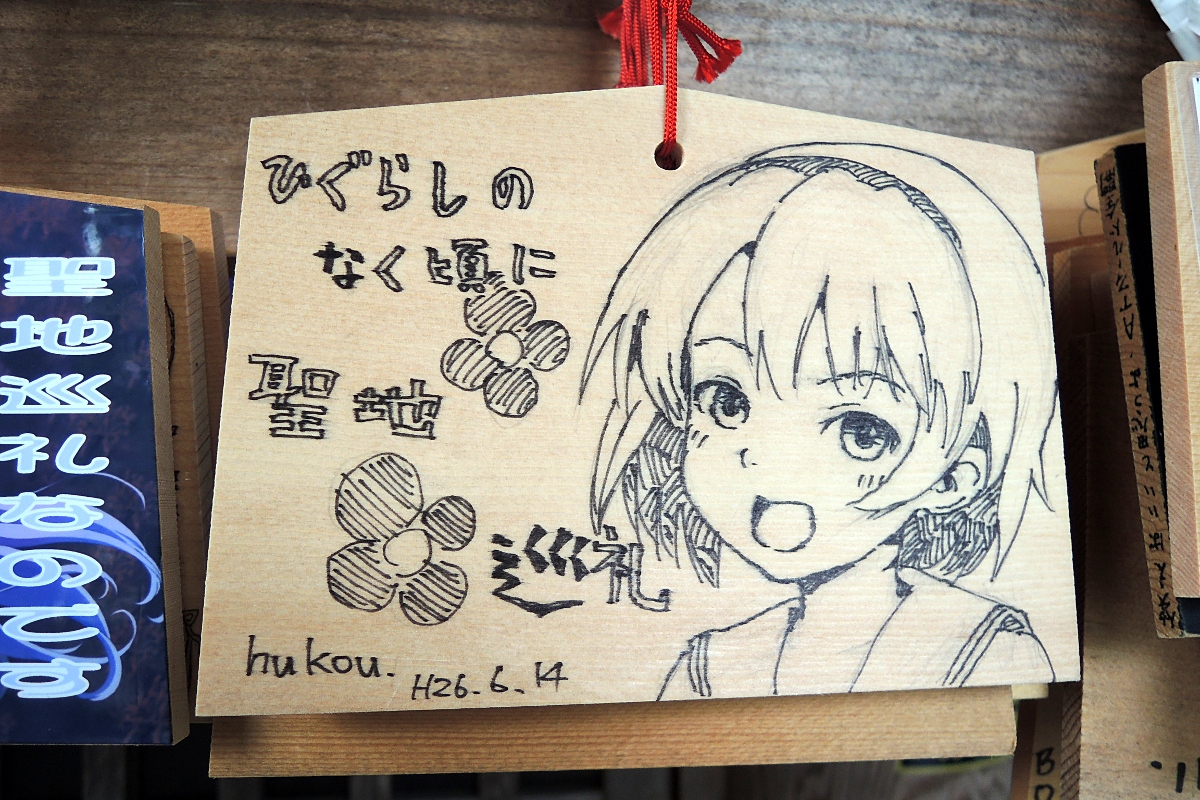 ひぐらしの
なく頃に
聖地
巡礼
hukou.
H26.6.14
聖地巡礼なのです